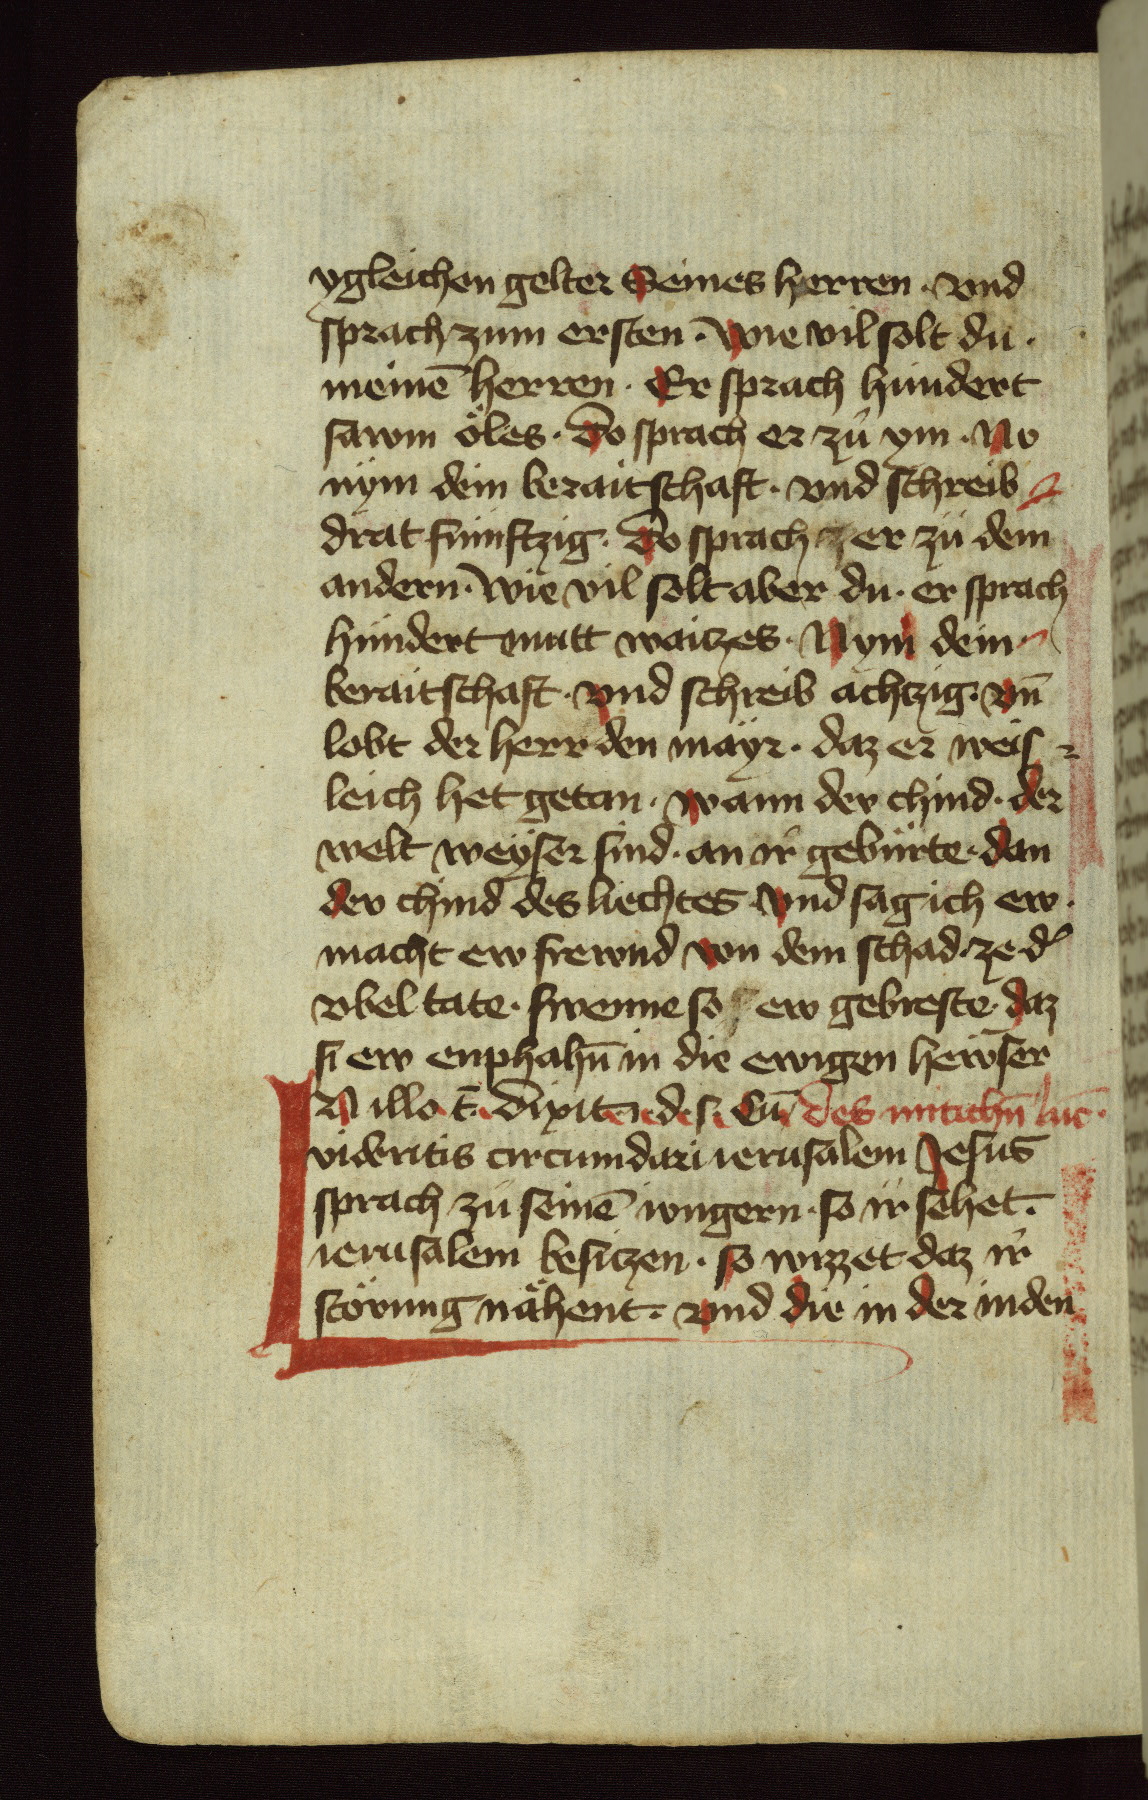 ygleichen gelter Seines herren · vnd
sprach zum ersten · wie vil solt du ·
meinē herren · Er sprach hundert
sawm öles · Do sprach er zů ym · No
nÿm dein beraitschaft · vnd schreib
drat fumftzig · Do sprach er zů dem
andern · wie vil solt aber du · er sprach
hundert mutt waitzes · Nym dein
beraitschaft · vnd schreib achtzig · vn̄
lobt der herr den mäyr · daz er weis
leich het getan · wann der chind · der
welt weÿser sind · an ir gebürte · dan
der chind des liechtes vnd sag ich ew ·
macht ew frewnd von dem schad · ze d'
vbel tate · swenne so ew gebreste · daz
si ew enphahn̄ in die ewigen hewser
IN illo t̄ · dixit · Cū des mitichn̄ luc̄ ·
videritis circumdari ierusalem Jesus
sprach zů seinē iungern · so ir sehet ·
ierusalem besitzen · so wizzet daz ir
störung nähent · vnd die in der iuden